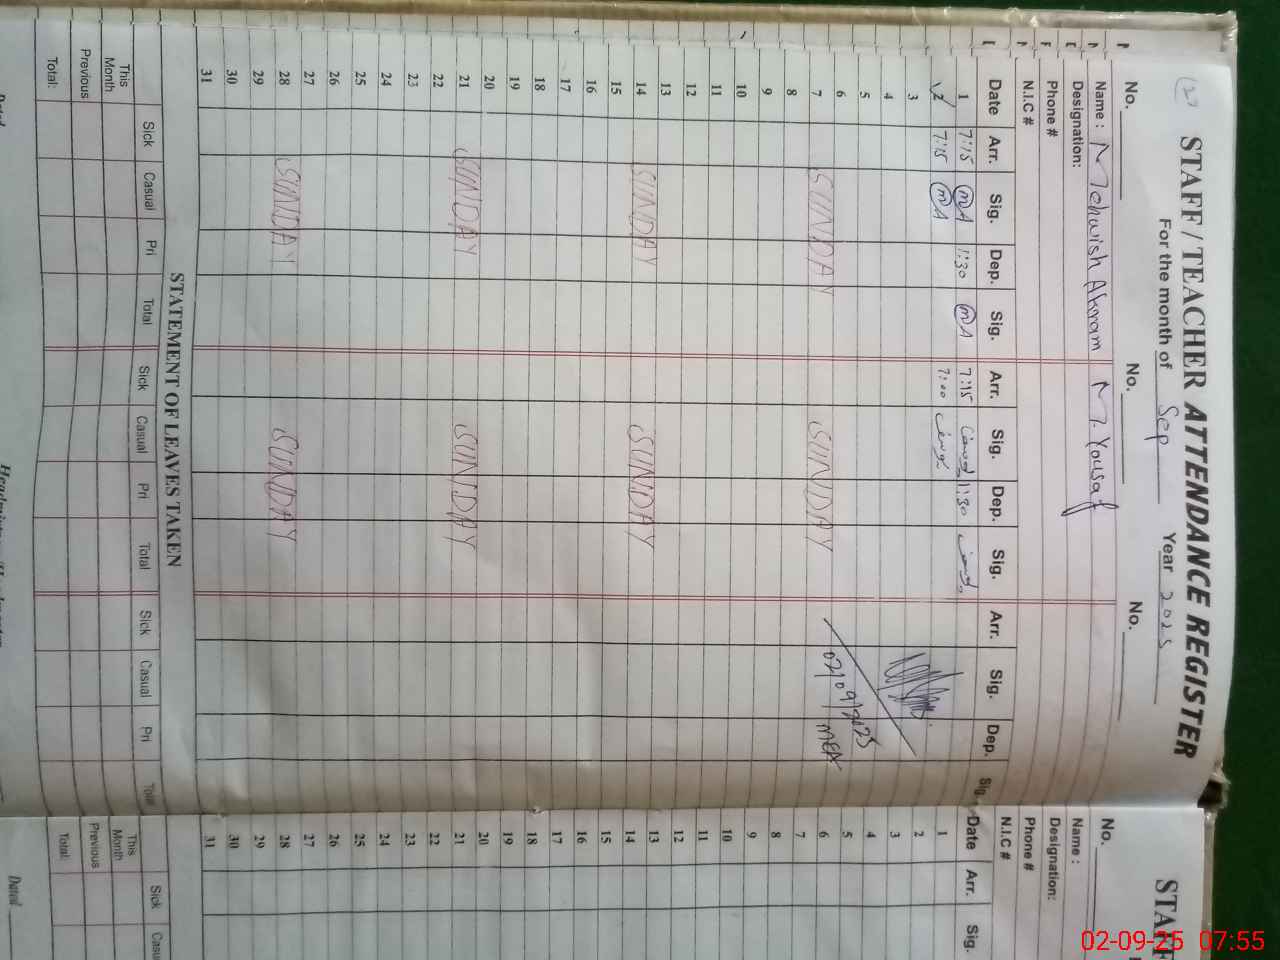 (2)
STAFF / TEACHER ATTENDANCE REGISTER
For the month of Sep Year 2025
No. No. No.
Name : Mehwish Akram M. Yousaf
Designation:
Phone #
N.I.C #
Date Arr. Sig. Dep. Sig. Arr. Sig. Dep. Sig. Arr. Sig. Dep. Sig.
1 7:15 mA 1:30 mA 7:15 1:30
2 7:15 mA 7:00
3
4
5
6
7 SUNDAY SUNDAY 02/09/2025 MEA
8
9
10
11
12
13
14 SUNDAY SUNDAY
15
16
17
18
19
20
21 SUNDAY SUNDAY
22
23
24
25
26
27
28 SUNDAY SUNDAY
29
30
31
STATEMENT OF LEAVES TAKEN
Sick Casual Pri Total Sick Casual Pri Total Sick Casual Pri Total
This Month
Previous
Total:
No.
Name :
Designation:
Phone #
N.I.C #
Date Arr. Sig.
1
2
3
4
5
6
7
8
9
10
11
12
13
14
15
16
17
18
19
20
21
22
23
24
25
26
27
28
29
30
31
Sick
This Month
Previous
Total:
Dated
02-09-25 07:55